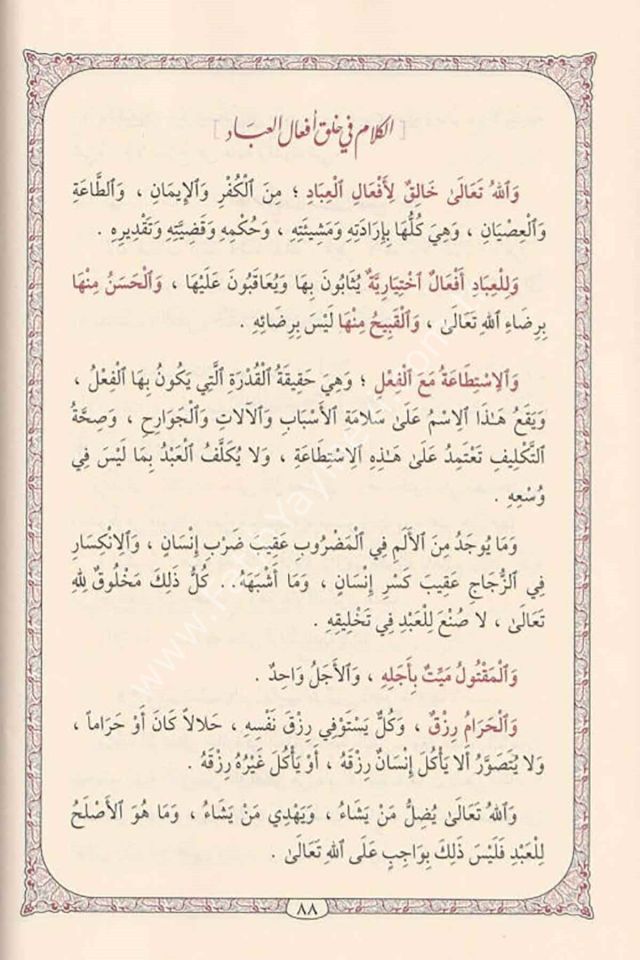 [ الكلام في خلق أفعال العباد ]
وَٱللهُ تَعَالَىٰ خَالِقٌ لِأَفْعَالِ ٱلْعِبَادِ ؛ مِنَ ٱلْكُفْرِ وَٱلْإِيمَانِ ، وَٱلطَّاعَةِ
وَٱلْعِصْيَانِ ، وَهِيَ كُلُّهَا بِإِرَادَتِهِ وَمَشِيئَتِهِ ، وَحُكْمِهِ وَقَضِيَّتِهِ وَتَقْدِيرِهِ .
وَلِلْعِبَادِ أَفْعَالٌ ٱخْتِيَارِيَّةٌ يُثَابُونَ بِهَا وَيُعَاقَبُونَ عَلَيْهَا ، وَٱلْحَسَنُ مِنْهَا
بِرِضَاءِ ٱللهِ تَعَالَىٰ ، وَٱلْقَبِيحُ مِنْهَا لَيْسَ بِرِضَائِهِ .
وَٱلِٱسْتِطَاعَةُ مَعَ ٱلْفِعْلِ ؛ وَهِيَ حَقِيقَةُ ٱلْقُدْرَةِ ٱلَّتِي يَكُونُ بِهَا ٱلْفِعْلُ ،
وَيَقَعُ هَـٰذَا ٱلِٱسْمُ عَلَىٰ سَلَامَةِ ٱلْأَسْبَابِ وَٱلْآلَاتِ وَٱلْجَوَارِحِ ، وَصِحَّةُ
ٱلتَّكْلِيفِ تَعْتَمِدُ عَلَىٰ هَـٰذِهِ ٱلِٱسْتِطَاعَةِ ، وَلَا يُكَلَّفُ ٱلْعَبْدُ بِمَا لَيْسَ فِي
وُسْعِهِ .
وَمَا يُوجَدُ مِنَ ٱلْأَلَمِ فِي ٱلْمَضْرُوبِ عَقِيبَ ضَرْبِ إِنْسَانٍ ، وَٱلِٱنْكِسَارِ
فِي ٱلزُّجَاجِ عَقِيبَ كَسْرِ إِنْسَانٍ ، وَمَا أَشْبَهَهُ.. كُلُّ ذَلِكَ مَخْلُوقٌ لِلهِ
تَعَالَىٰ ، لَا صُنْعَ لِلْعَبْدِ فِي تَخْلِيقِهِ .
وَٱلْمَقْتُولُ مَيِّتٌ بِأَجَلِهِ ، وَٱلْأَجَلُ وَاحِدٌ .
وَٱلْحَرَامُ رِزْقٌ ، وَكُلٌّ يَسْتَوْفِي رِزْقَ نَفْسِهِ ، حَلَالاً كَانَ أَوْ حَرَاماً ،
وَلَا يُتَصَوَّرُ أَلَّا يَأْكُلَ إِنْسَانٌ رِزْقَهُ ، أَوْ يَأْكُلَ غَيْرُهُ رِزْقَهُ .
وَٱللهُ تَعَالَىٰ يُضِلُّ مَنْ يَشَاءُ ، وَيَهْدِي مَنْ يَشَاءُ ، وَمَا هُوَ ٱلْأَصْلَحُ
لِلْعَبْدِ فَلَيْسَ ذَلِكَ بِوَاجِبٍ عَلَى ٱللهِ تَعَالَىٰ .
٨٨